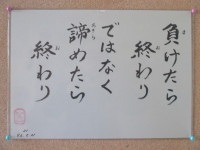 負けたら
終わり
ではなく
諦めたら
終わり